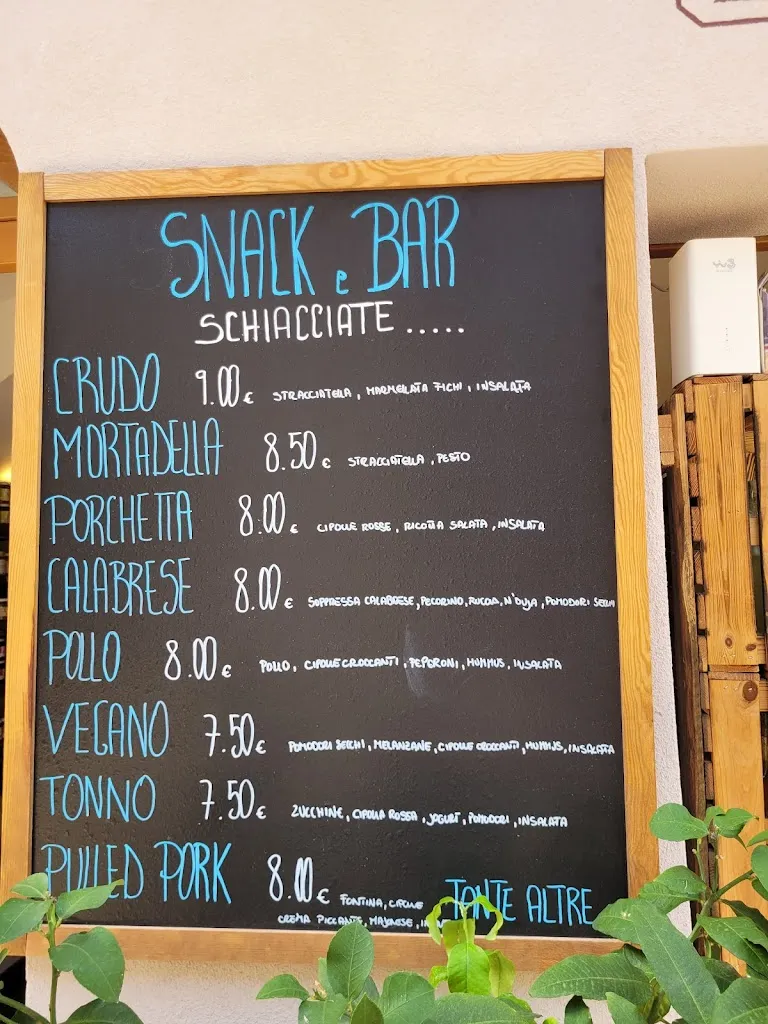 SNACK e BAR
SCHIACCIATE .....
CRUDO 9.00 € STRACCIATELLA, MARMELLATA FICHI, INSALATA
MORTADELLA 8.50 € STRACCIATELLA, PESTO
PORCHETTA 8.00 € CIPOLLE ROSSE, RICOTTA SALATA, INSALATA
CALABRESE 8.00 € SOPPRESSA CALABRESE, PECORINO, RUCOLA, N'DUJA, POMODORI SECCHI
POLLO 8.00 € POLLO, CIPOLLE CROCCANTI, PEPERONI, HUMMUS, INSALATA
VEGANO 7.50 € POMODORI SECCHI, MELANZANE, CIPOLLE CROCCANTI, HUMMUS, INSALATA
TONNO 7.50 € ZUCCHINE, CIPOLLA ROSSA, JOGURT, POMODORI, INSALATA
PULLED PORK 8.00 € FONTINA, CIPOLLE
CREMA PICCANTE, MAJONESE,
TANTE ALTRE